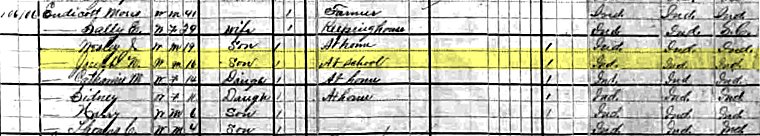 106 106 Endicott Moses W M 41 1 Farmer Ind. Ind. Ind.
— Sally E. W F 39 Wife 1 Keeping house Ind. Ind.
— Wesley J. W M 19 Son 1 At home Ind. Ind. Ind.
— Joseph M. W M 16 Son 1 At School Ind. Ind. Ind.
— Catharine M W F 14 Daugh 1 At home Ind. Ind. Ind.
— Sidney W F 11 Daugh 1 At home Ind. Ind. Ind.
— Harry W M 6 Son 1 Ind. Ind. Ind.
— Thomas C. W M 4 Son 1 Ind. Ind. Ind.